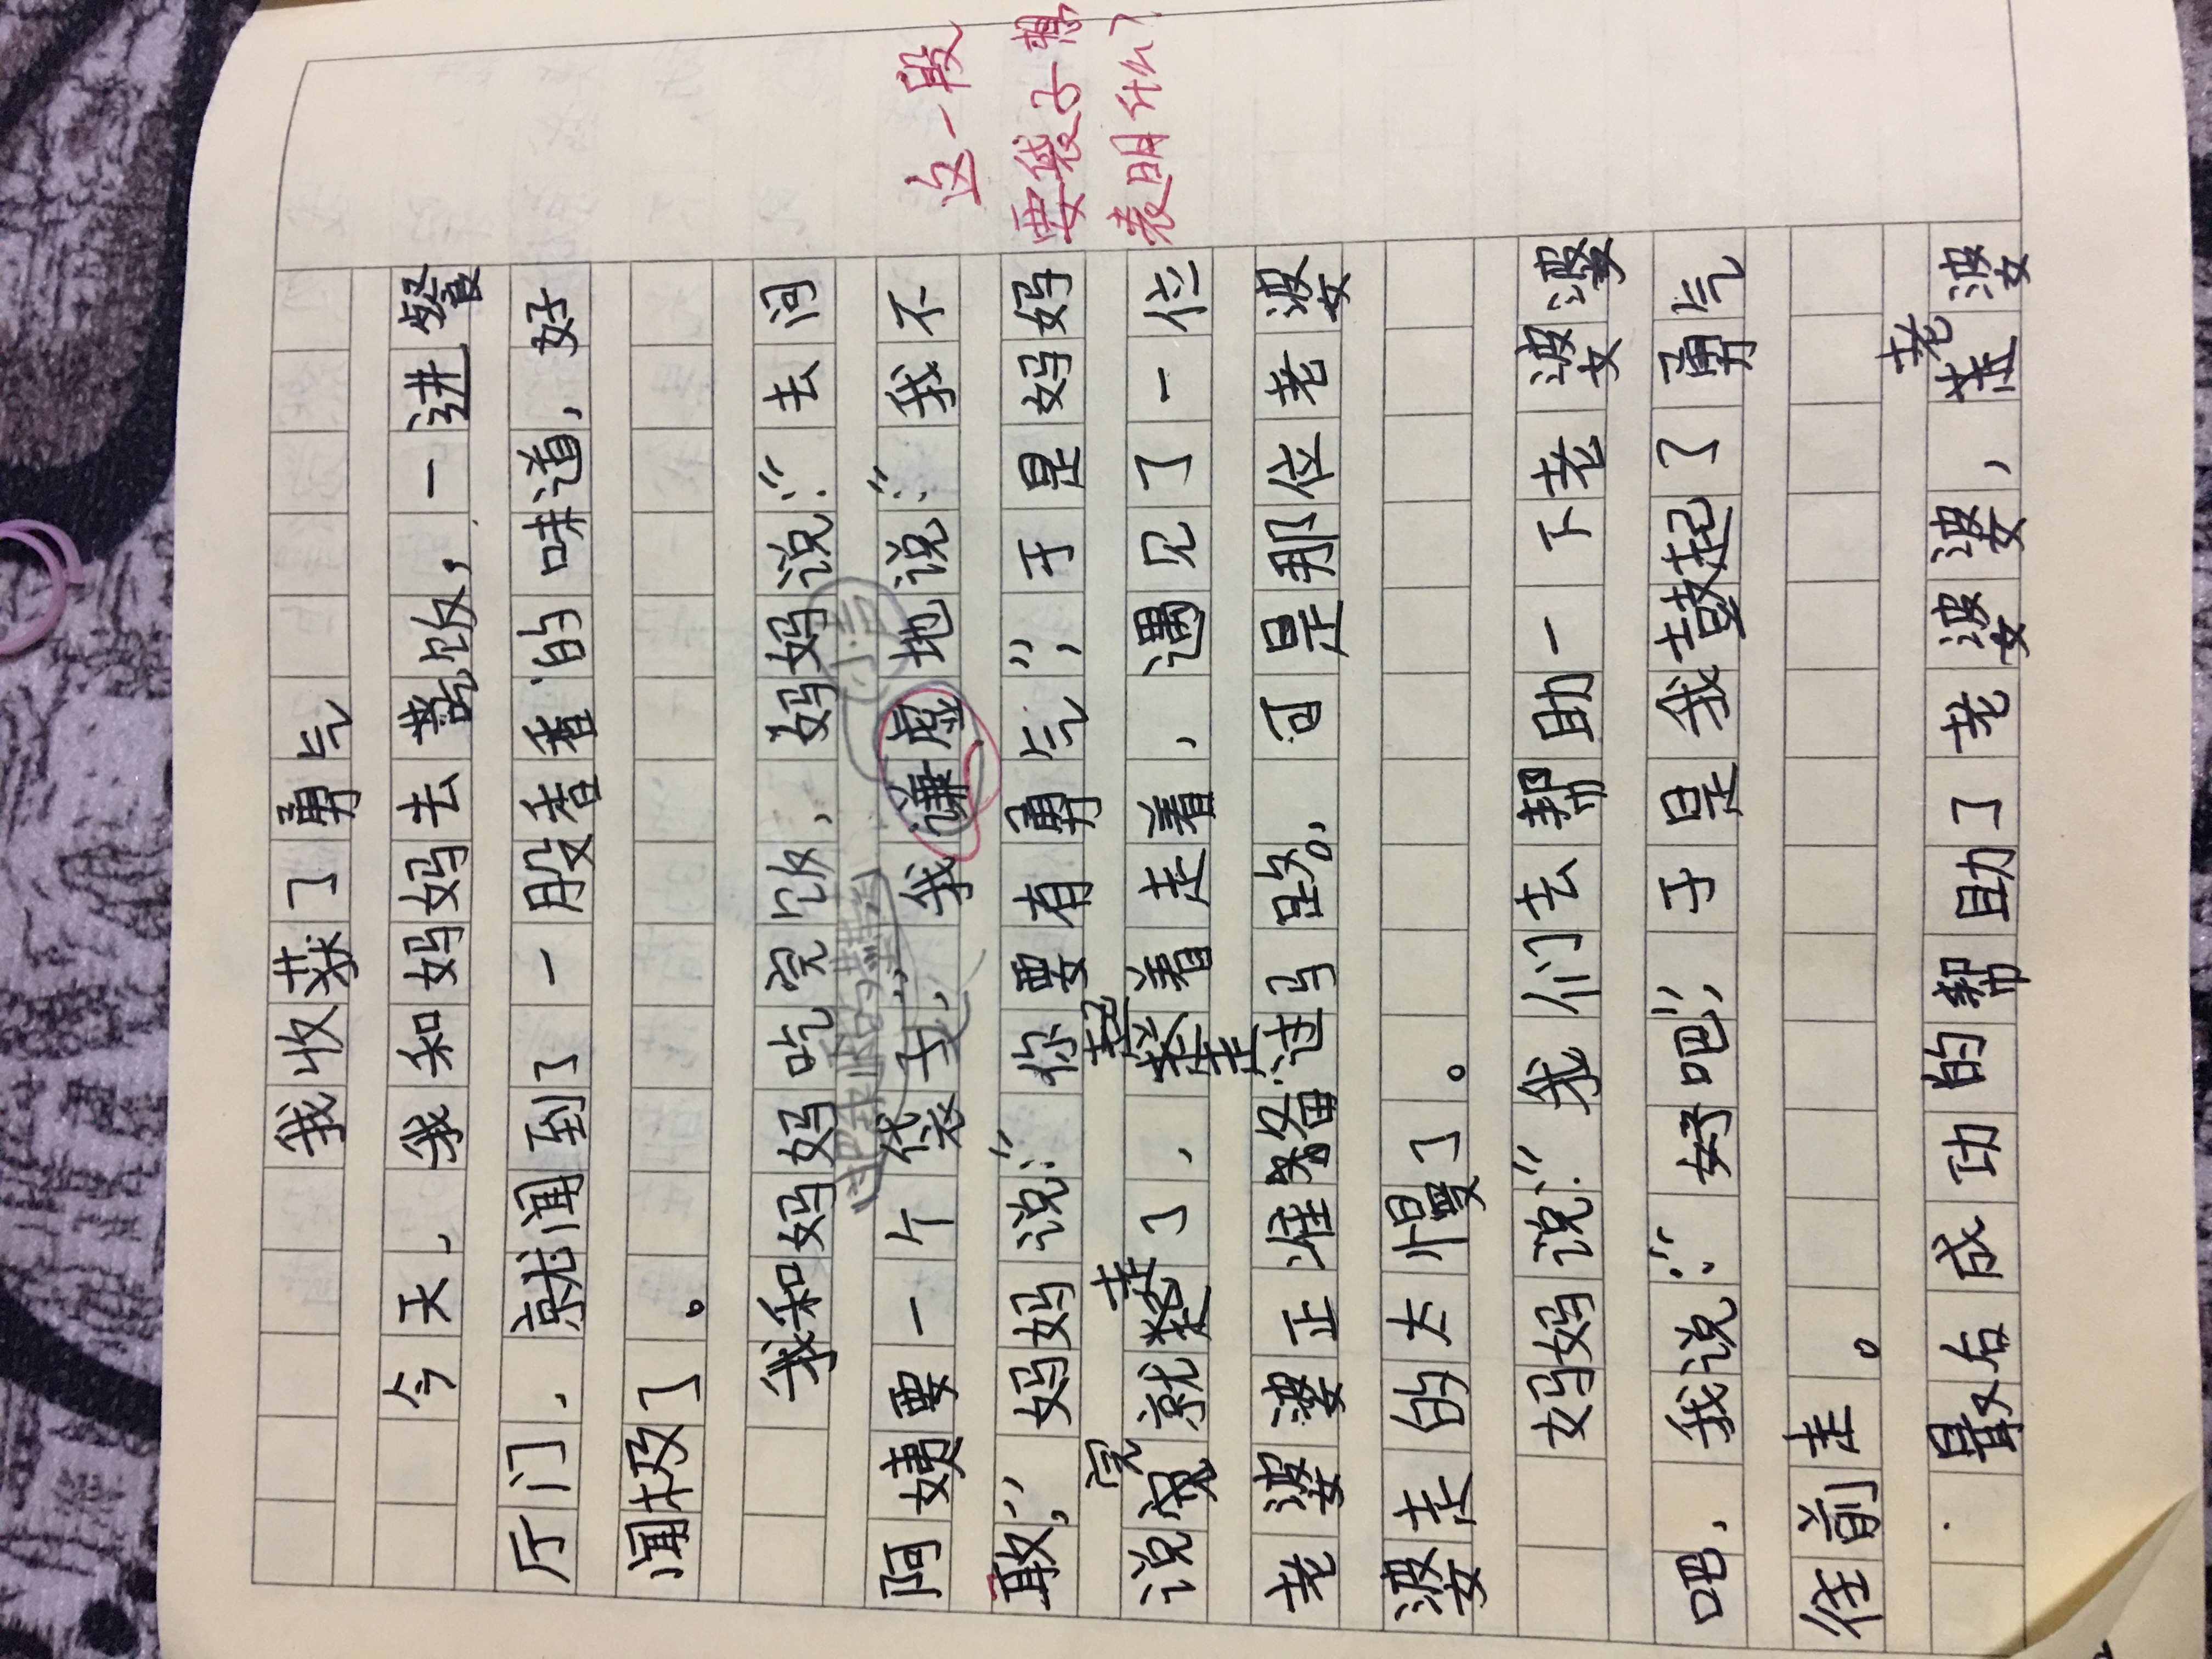 我收获了勇气
今天，我和妈妈去吃饭，一进餐
厅门，就闻到了一股香香的味道，好
闻极了。
我和妈妈吃完饭，妈妈说：“去问
阿姨要一个袋子，”我谦虚地说：“我不
敢，”妈妈说：“你要有勇气”，于是妈妈
说完就走了，走着走着，遇见了一位
老婆婆正准备过马路。可是那位老婆
婆走的太慢了。
妈妈说：“我们去帮助一下老婆婆
吧，我说：“好吧”，于是我鼓起了勇气
往前走。
最后成功的帮助了老婆婆，老婆
这一段
要袋子想
表明什么？